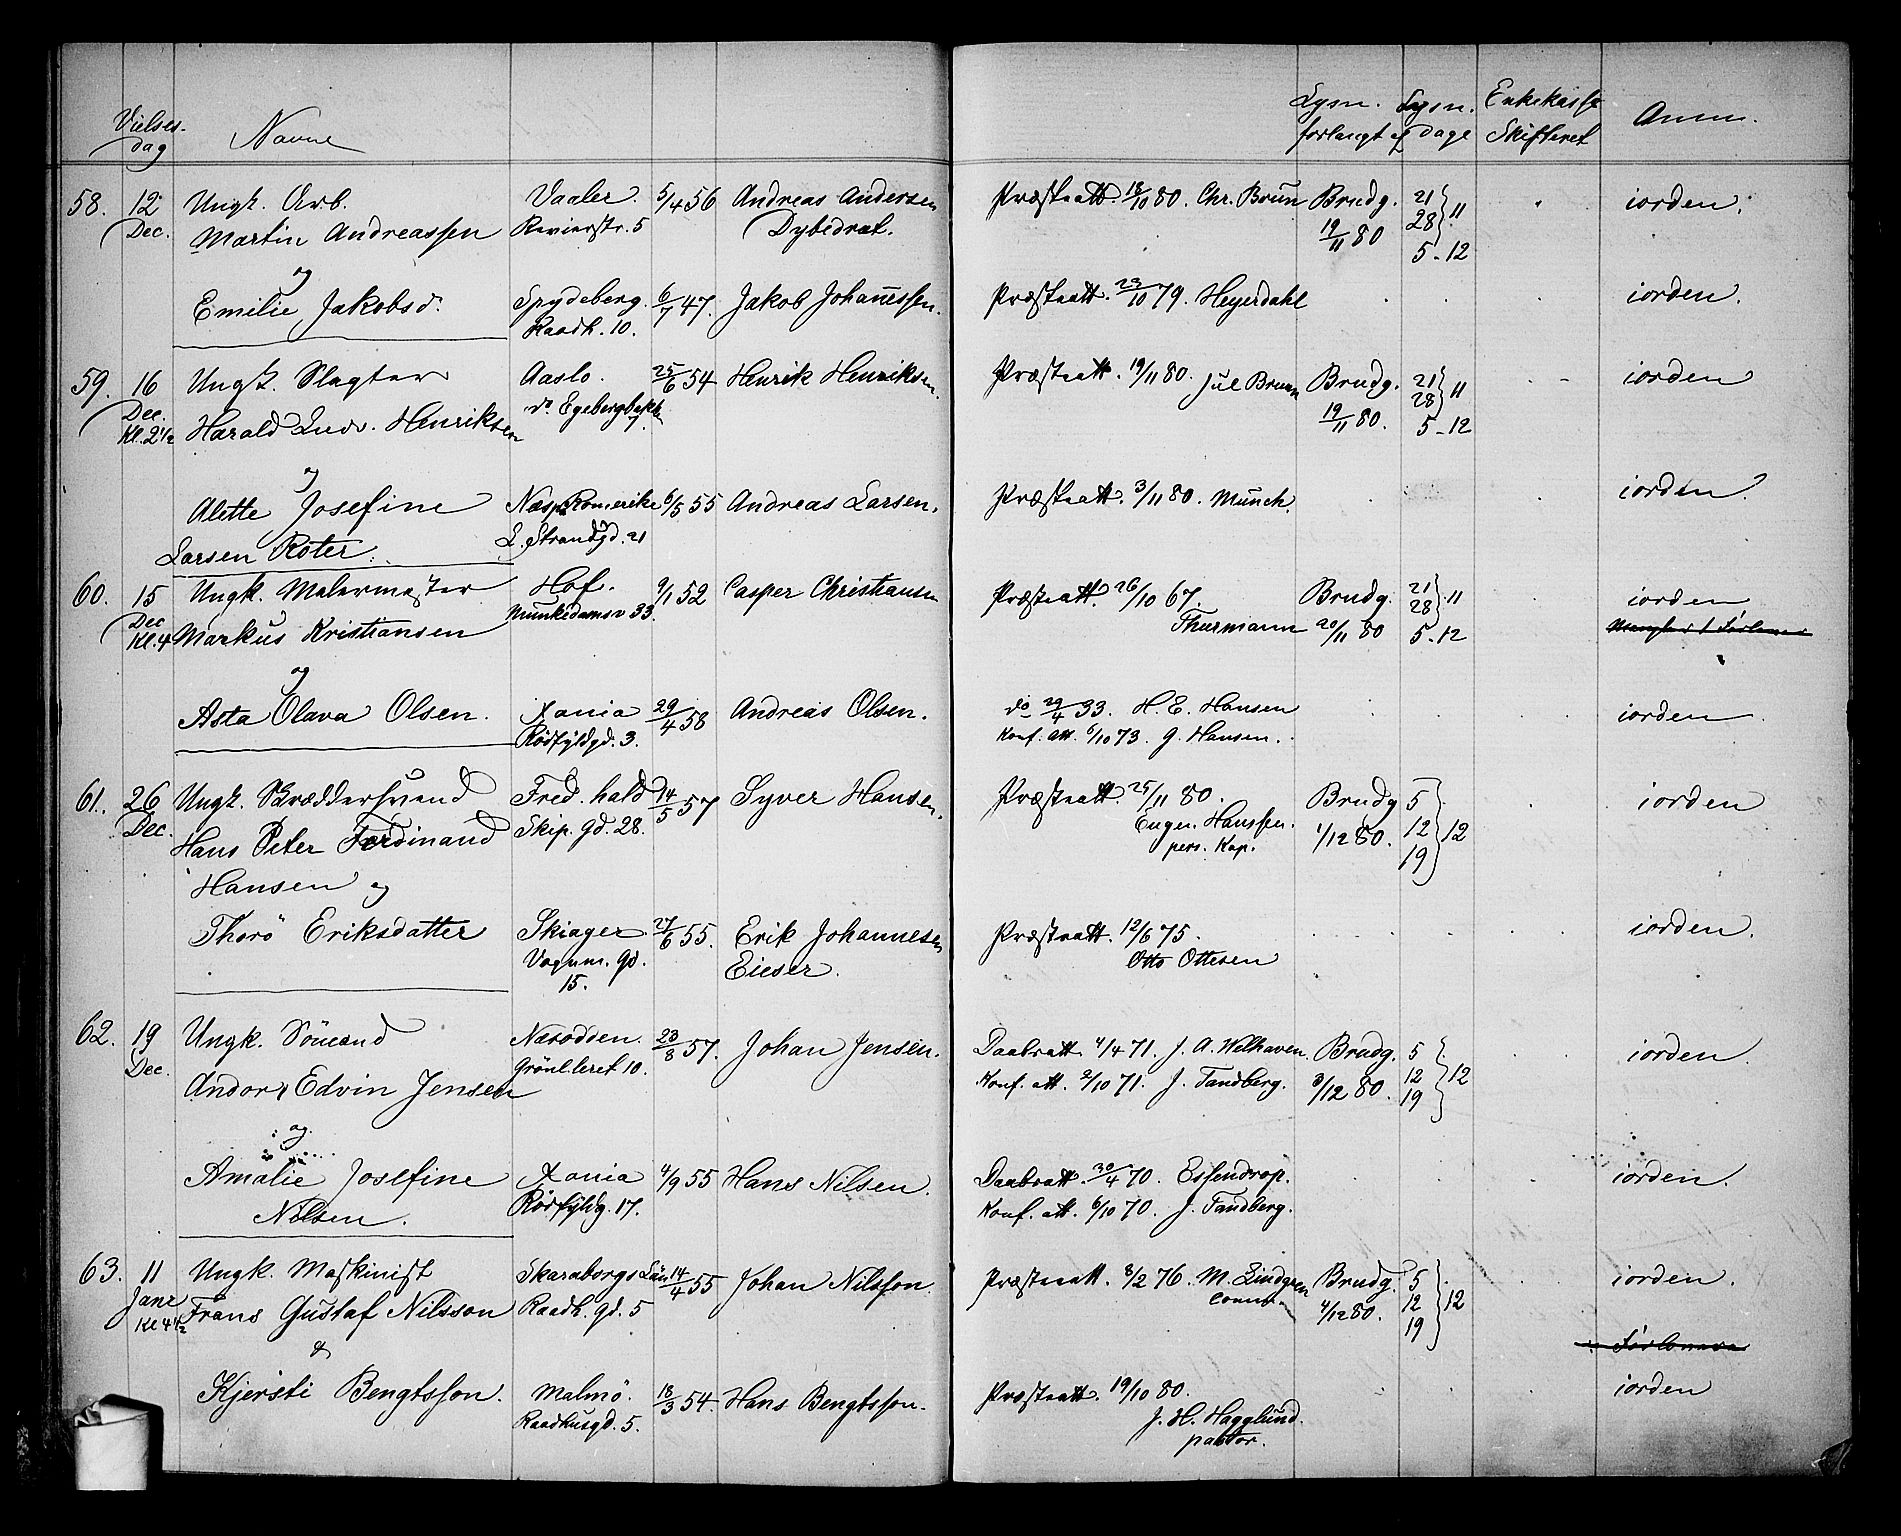 Vielses- Navne Lysn. Lysn. Enkekasse Anm.
dag forlangt af dage Skifteret
58. 12 Ungk. Arb. Vaaler. 5/4 56 Andreas Andersen Præsteatt. 18/10 80. Chr. Brun Brudg. 21 } 11 iorden.
Dec. Martin Andreassen Revierstr. 5 Dybedræt. 19/11 80 28
5-12
og
Emilie Jakobsd. Spydeberg. 6/7 47. Jakob Johannessen. Præsteatt. 23/10 79. Heyerdahl iorden.
Raadh. 10.
59. 16 Ungk. Slagter Aaslo. 25/6 54 Henrik Henriksen. Præsteatt. 19/11 80. Jul Bruun Brudg. 21 } 11 iorden
Dec. Harald Ludv. Henriksen do Egebergbakk. 19/11 80. 28
Kl. 2 1/2 5-12
og
Alette Josefine Næs p. Romerike 6/5 55 Andreas Larsen. Præsteatt. 3/11 80. Munch. iorden.
Larsen Roter. L. Strandgd. 21
60. 15 Ungk. Malermester Hof. 9/1 52 Casper Christiansen Præsteatt. 26/10 67. Brudg. 21 } 11 iorden
Dec Markus Kristiansen Munkedamsv 33. Thurmann 20/11 80 28
Kl. 4 5-12
og
Asta Olava Olsen. Xania 29/4 58 Andreas Olsen. do 29/4 33. H. E. Hansen iorden.
Rödfyldgd. 3. Konf. att. 6/10 73. G. Hansen.
61. 26 Ungk. Skræddersvend Fred. hald 14/5 57 Syver Hansen. Præsteatt. 25/11 80. Brudg 5 } 12 iorden
Dec. Hans Peter Ferdinand Skip. gd. 28. Eugen. Hanssen. 1/12 80. 12
pers. Kap. 19
Hansen og
Thorö Eriksdatter Skiager. 27/6 55. Erik Johannesen Præsteatt. 12/6 75. iorden.
Vognm. gd. Eieser. Otto Ottesen
15.
62. 19 Ungk. Sömand Næsodden. 23/8 57. Johan Jensen. Daabsatt. 4/4 71. J. A. Welhaven. Brudg. 5 } 12 iorden.
Dec. Andor Edvin Jensen Grönl.leret 10. Konf. att. 2/10 71. J. Tandberg. 3/12 80. 12
19
og
Amalie Josefine Xania 4/9 55 Hans Nilsen. Daabsatt. 30/4 70. Essendrop. iorden.
Nilsen. Rödfyldg. 17. Konf. att. 6/10 70. J. Tandberg.
63. 11 Ungk. Maskinist Skaraborgs Län 14/4 55 Johan Nilsson. Præsteatt. 8/2 76. M. Lindgren Brudg. 5 } 12 iorden.
Janr Frans Gustaf Nilsson Raadh. gd. 5 Comm. 4/12 80. 12
Kl 4 1/2 19
&
Kjersti Bengtsson. Malmö. 18/3 54. Hans Bengtsson. Præsteatt. 19/10 80. iorden
Raadhusgd. 5. J. H. Hagglund.
pastor.